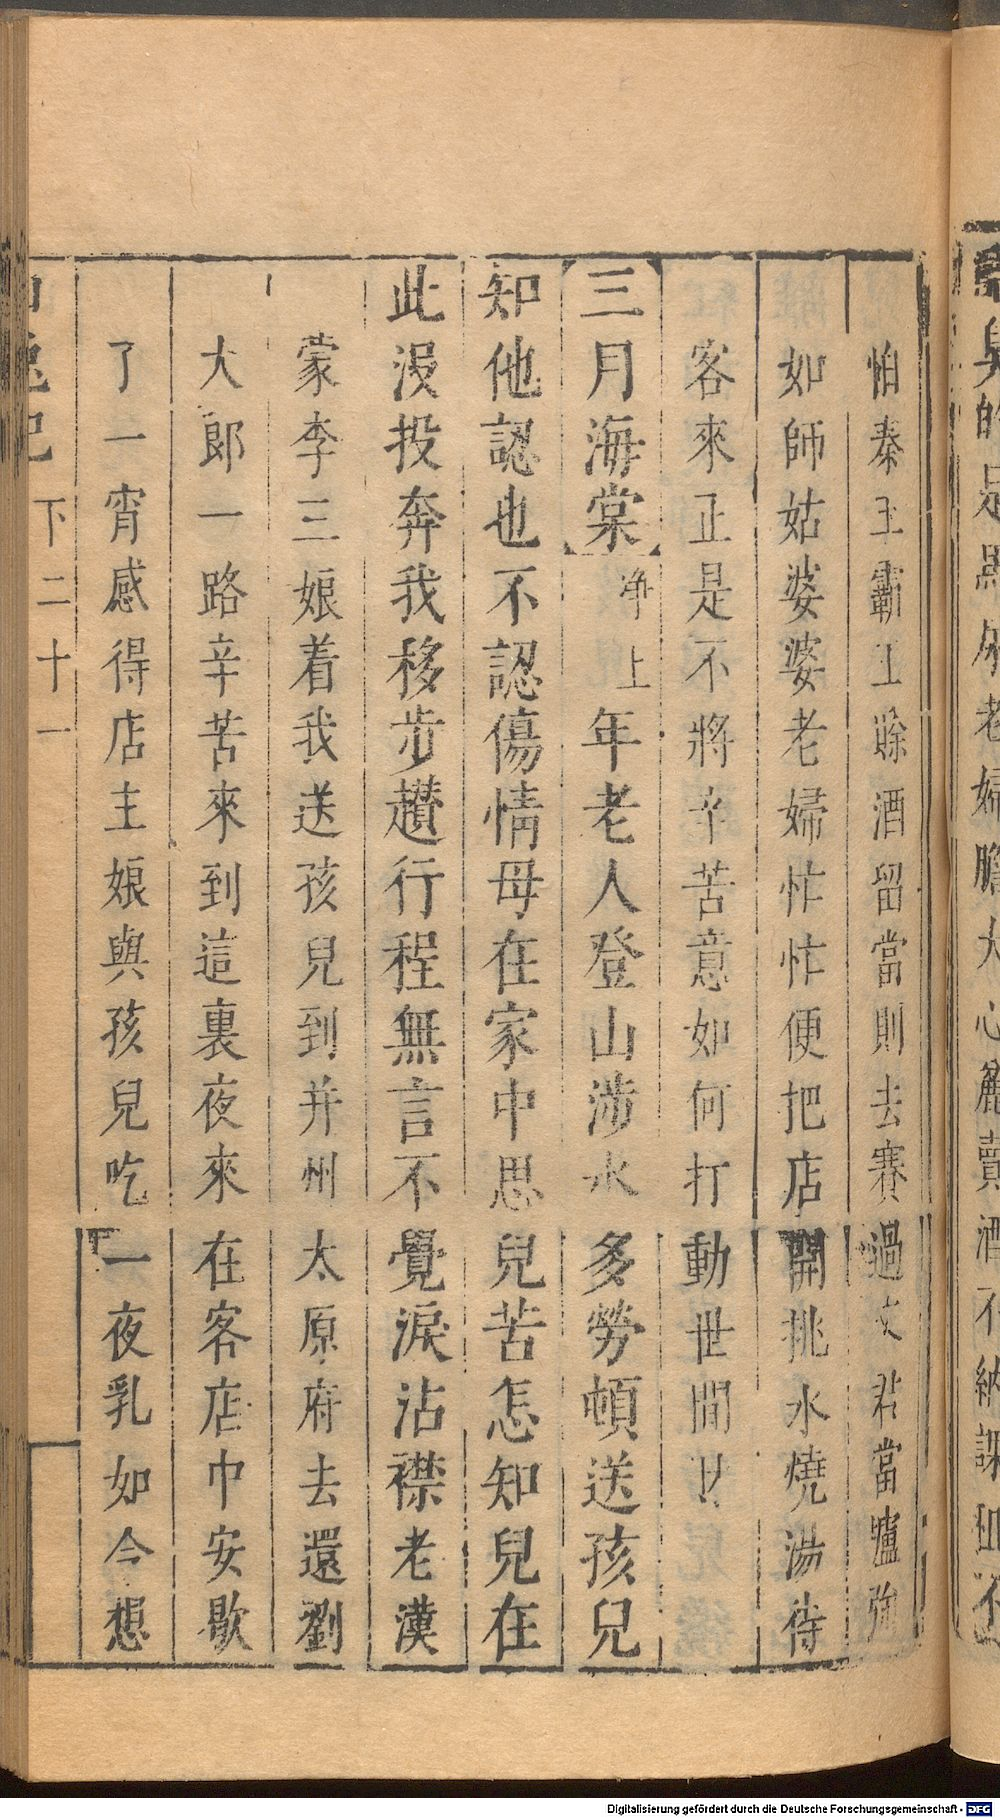 怕秦王霸王賒酒留當則去賽過文君當壚強
如師姑婆婆老婦忙忙便把店開挑水燒湯待
客來正是不將辛苦意如何打動世間
三月海棠 淨上 年老人登山涉水多勞頓送孩兒
知他認也不認傷情母在家中思兒苦怎知兒在
此沒投奔我移步趲行程無言不覺淚沾襟老漢
蒙李三娘着我送孩兒到并州太原府去還劉
大郎一路辛苦來到這裏夜來在客店中安歇
了一宵感得店主娘與孩兒吃一夜乳如今想
兔記 下二十一
臭的是點人老婦膽大心麄賣酒不納課
Digitalisierung gefördert durch die Deutsche Forschungsgemeinschaft - DFG